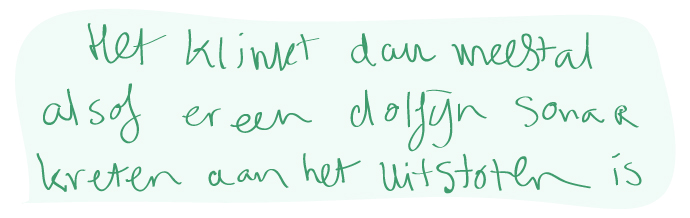 Het klinkt dan meestal
alsof er een dolfijn sonar
kreten aan het uitstoten is